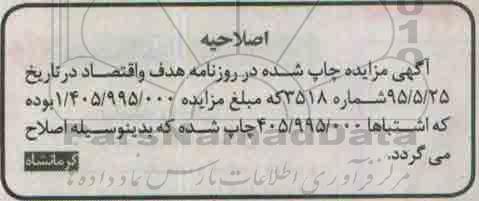 اصلاحیه
آگهی مزایده چاپ شده در روزنامه هدف واقتصاد درتاریخ
۹۵/۵/۲۵شماره ۳۵۱۸که مبلغ مزایده ۱/۴۰۵/۹۹۵/۰۰۰بوده
که اشتباها ۴۰۵/۹۹۵/۰۰۰چاپ شده که بدینوسیله اصلاح
می گردد.
کرمانشاه
ParsNamadData
مرکز فرآوری اطلاعات پارس نماد داده ها